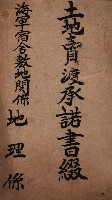 土地賣渡承諾書綴
海軍宿舎敷地関係
地理係